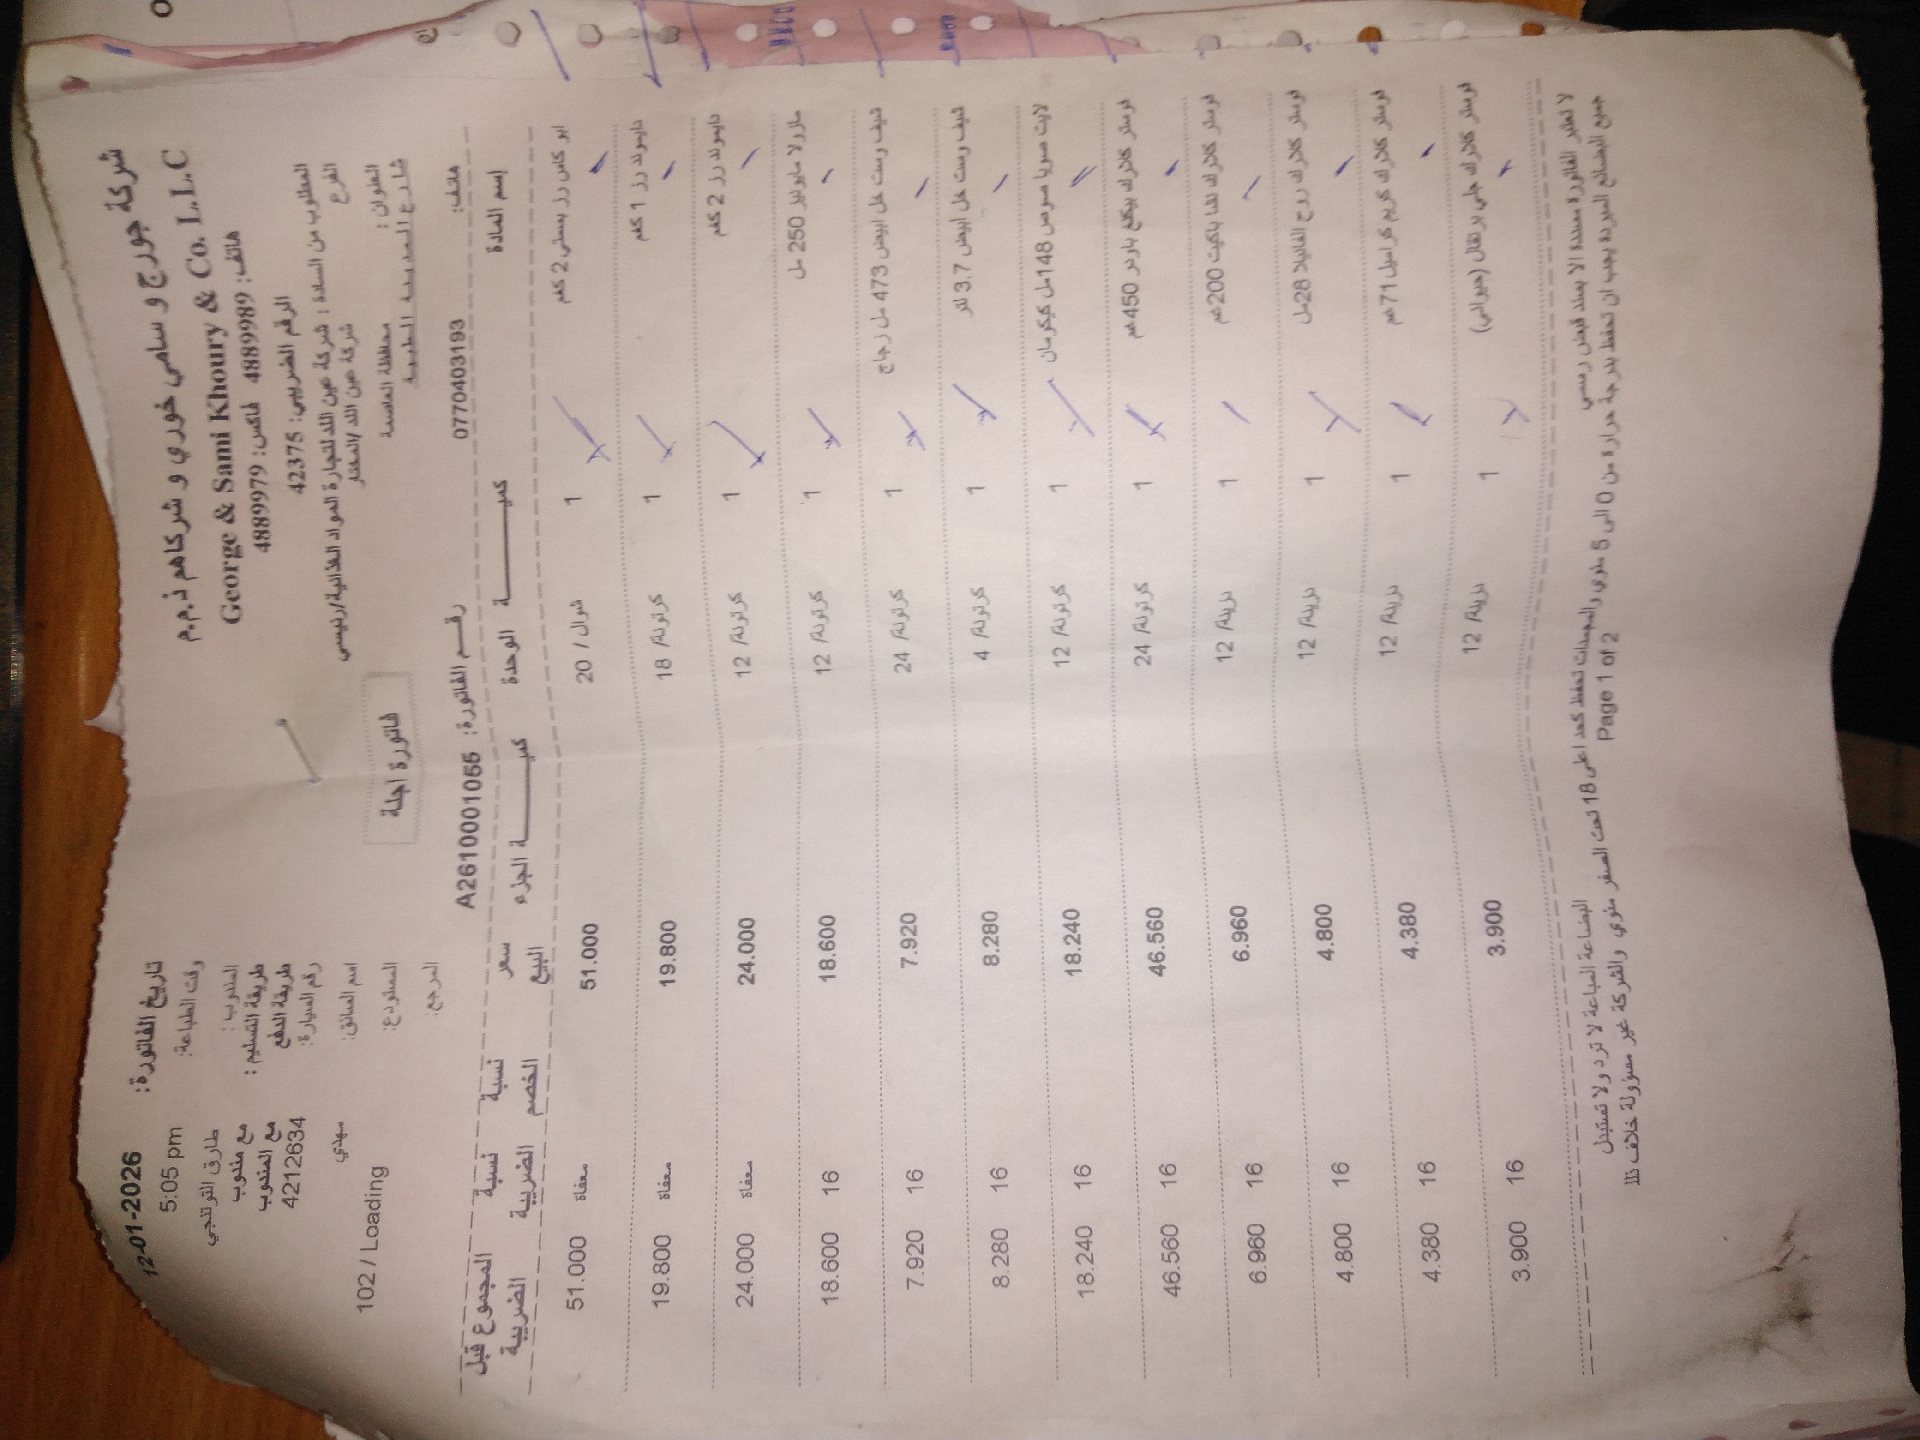 شركة جورج و سامي خوري و شركاهم ذ.م.م
George & Sami Khoury & Co. L.L.C
هاتف: 4889989 فاكس: 4889979
الرقم الضريبي: 42375
المطلوب من السادة : شركة عين اللد لتجارة المواد الغذائية/رئيسي
الفرع شركة عين اللد /
العنوان : محافظة العاصمة
هاتف: 0770403193
فاتورة اجلة
رقم الفاتورة: A2610001055
تاريخ الفاتورة: 12-01-2026
وقت الطباعة: 5:05 pm
المندوب : طارق
طريقة التسليم : مع مندوب
طريقة الدفع مع المندوب
رقم السيارة: 4212634
اسم السائق: مهدي
المستودع: 102 / Loading
المرجع:
إسم المادة كميـة الوحدة كميـة الجزء سعر البيع نسبة الخصم نسبة الضريبة المجموع قبل الضريبة
ابو كاس رز بسمتي 2 كغم 1 شوال / 20 51.000 معفاة 51.000
دايموند رز 1 كغم 1 كرتونة/ 18 19.800 معفاة 19.800
دايموند رز 2 كغم 1 كرتونة/ 12 24.000 معفاة 24.000
مازولا مايونيز 250 مل 1 كرتونة/ 12 18.600 16 18.600
شيف رست خل ابيض 473 مل زجاج 1 كرتونة/ 24 7.920 16 7.920
شيف رست خل ابيض 3.7 لتر 1 كرتونة/ 4 8.280 16 8.280
لايت صويا صوص 148مل كيكومان 1 كرتونة/ 12 18.240 16 18.240
فوستر كلارك بيكنج باودر 450غم 1 كرتونة/ 24 46.560 16 46.560
فوستر كلارك نشا باكيت 200غم 1 دزينة/ 12 6.960 16 6.960
فوستر كلارك روح الفانيلا 28مل 1 دزينة/ 12 4.800 16 4.800
فوستر كلارك كريم كراميل 71غم 1 دزينة/ 12 4.380 16 4.380
فوستر كلارك جلي برتقال (حيواني) 1 دزينة/ 12 3.900 16 3.900
لا تعتبر الفاتورة مسددة الا بسند قبض رسمي البضاعة المباعة لا ترد ولا تستبدل
جميع البضائع المبردة يجب ان تحفظ بدرجة حرارة من 0 الى 5 مئوي والمجمدات تحفظ كحد اعلى 18 تحت الصفر مئوي والشركة غير مسؤولة خلاف ذلك
Page 1 of 2